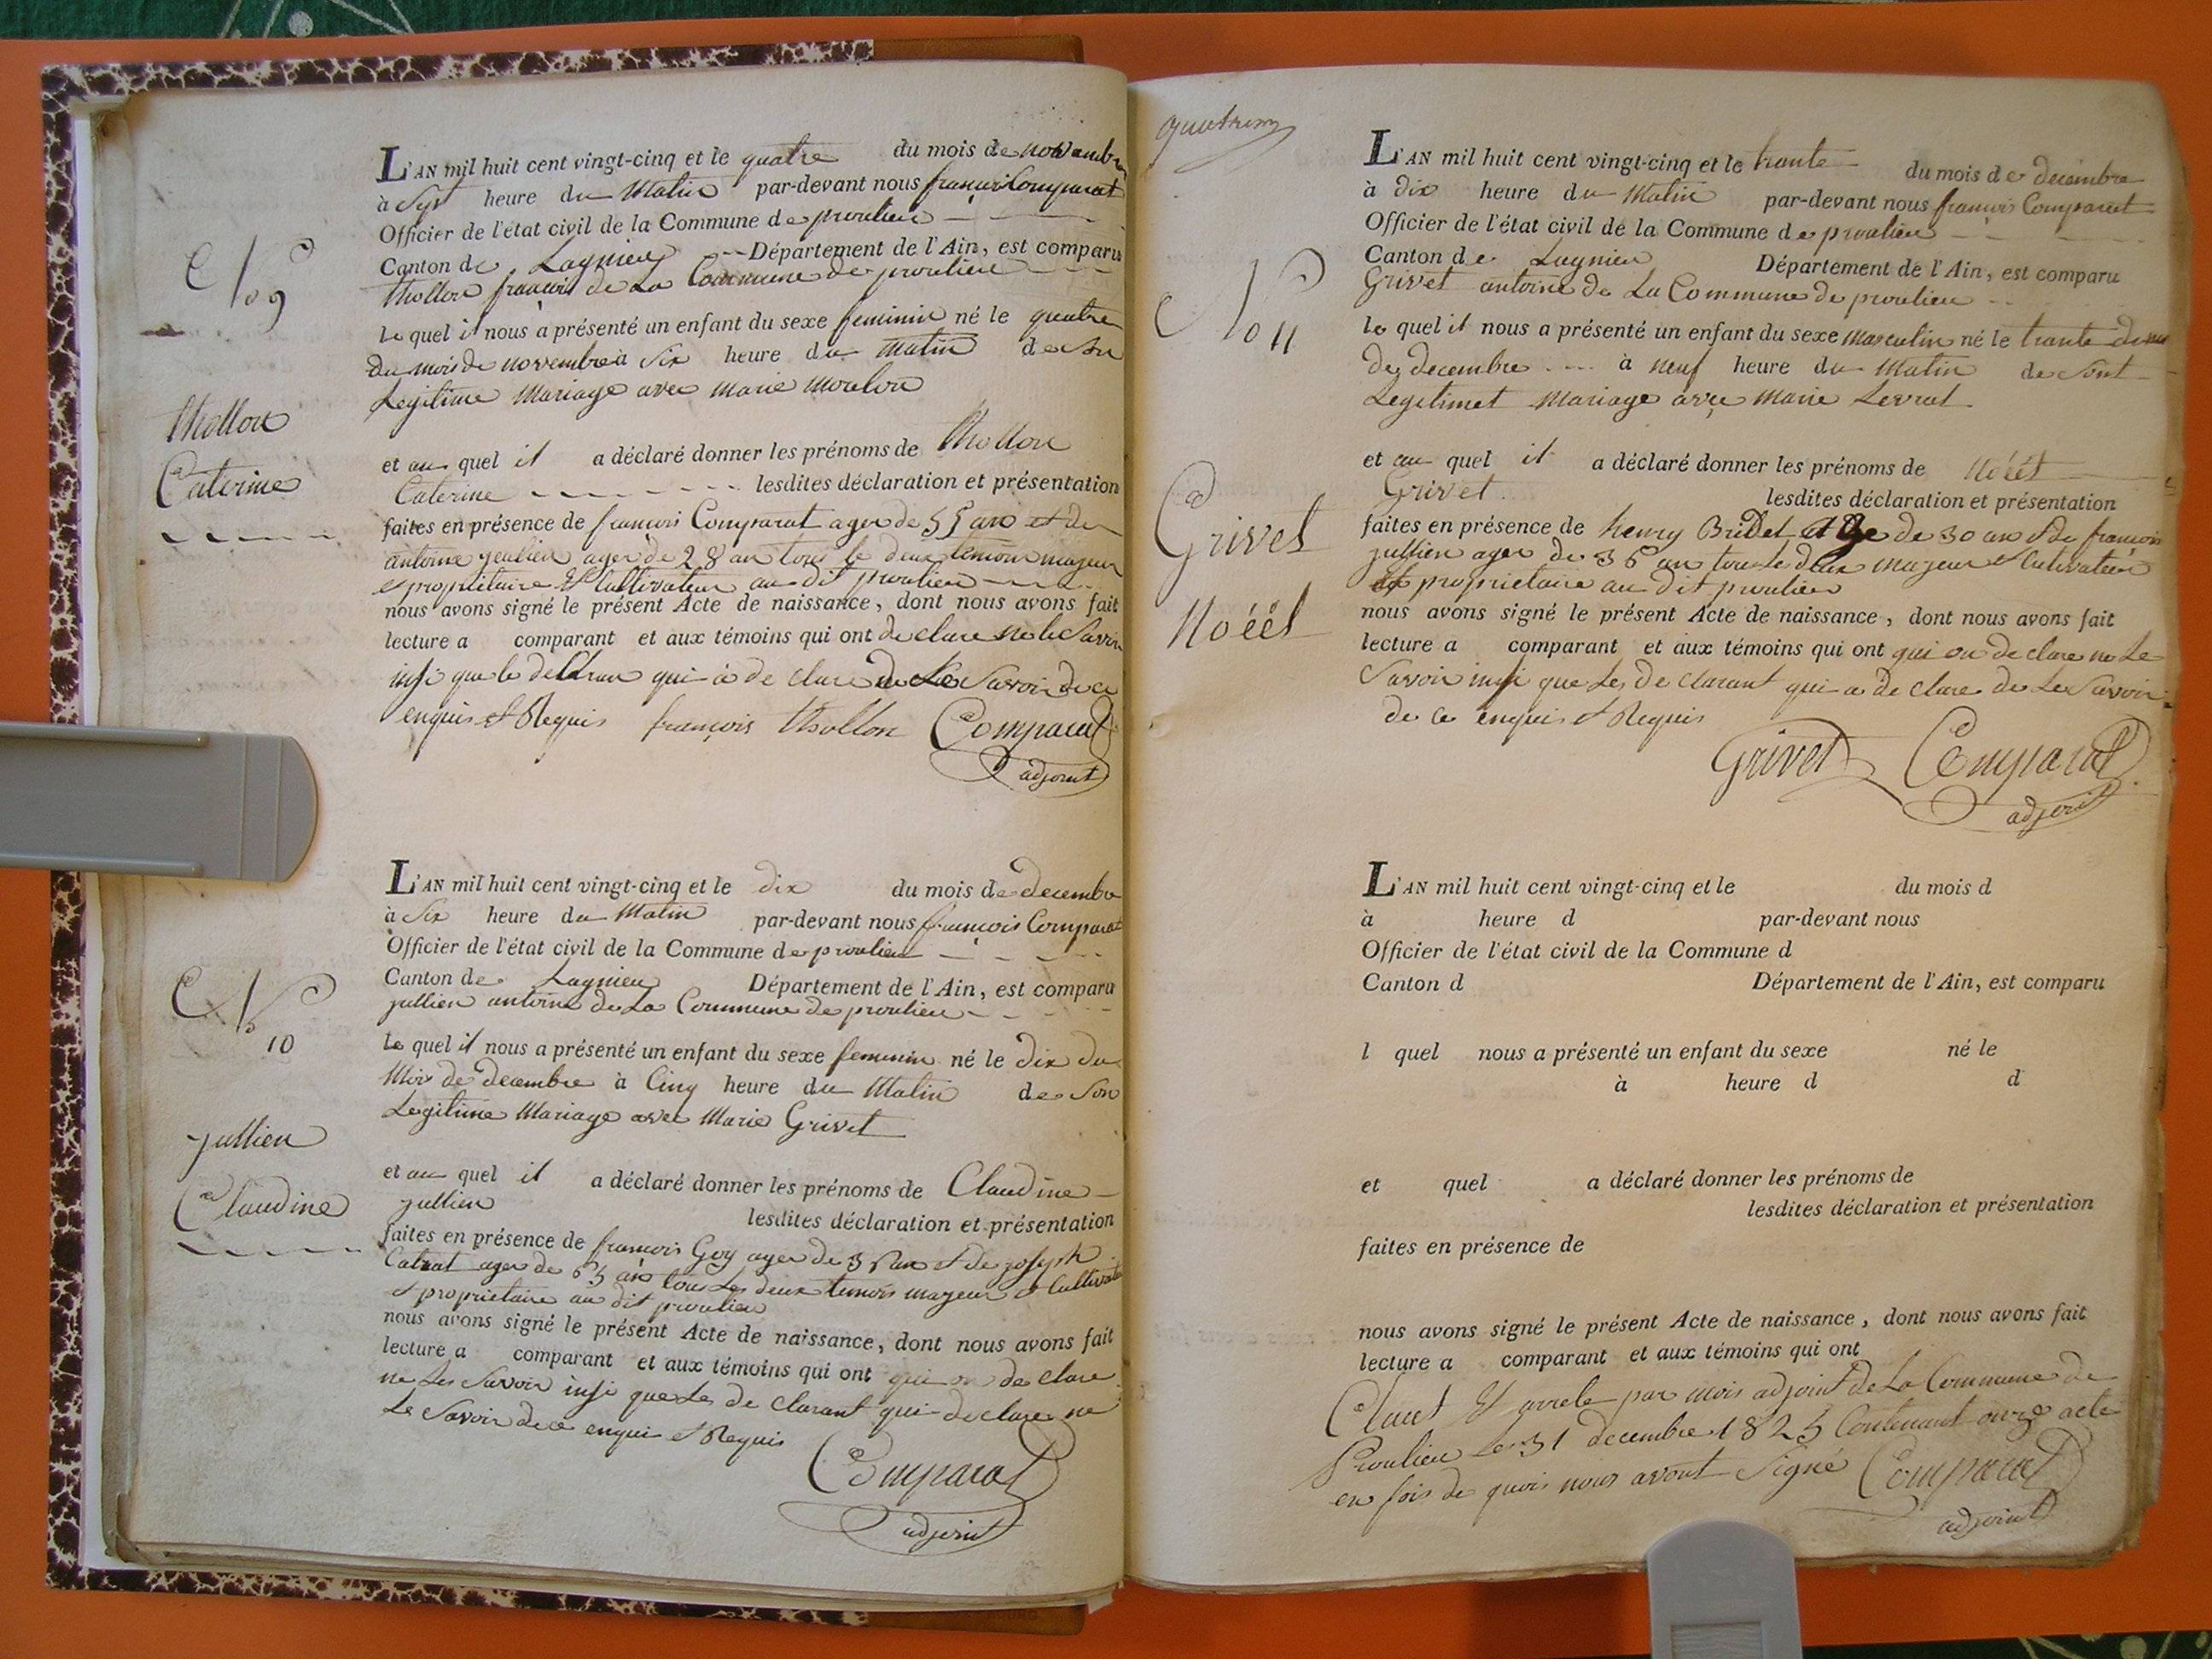 L'AN mil huit cent vingt-cinq et le quatre du mois de novembre
à Sept heure du Matin par-devant nous francois Comparat
Officier de l'état civil de la Commune de proulieu
Canton de Lagnieu Département de l'Ain, est comparu
thollon françois de La Commune de proulieu
N° 9
le quel il nous a présenté un enfant du sexe feminin né le quatre
du mois de novembre à Six heure du matin de son
Legitime Mariage avec marie moulon
thollon
Caterine
et au quel il a déclaré donner les prénoms de thollon
Caterine lesdites déclaration et présentation
faites en présence de francois Comparat ager de 55 ans et de
antoine jeullien ager de 28 an tous le deux temoin majeur
et propriétaire Et Cultivateur au dit proulieu
nous avons signé le présent Acte de naissance, dont nous avons fait
lecture a comparant et aux témoins qui ont de clare ne le Savoir
insi que le qui a de clare Savoir de ce
enquis et Requis françois thollon Comparat
adjoint
L'AN mil huit cent vingt-cinq et le dix du mois de decembre
à Six heure du Matin par-devant nous francois Comparat
Officier de l'état civil de la Commune de proulieu
Canton de Lagnieu Département de l'Ain, est comparu
jullien antoine de La Commune de proulieu
N° 10
le quel il nous a présenté un enfant du sexe feminin né le dix du
Mois de decembre à Cinq heure du Matin de Son
Legitime Mariage avec Marie Grivet
jullien
Claudine
et au quel il a déclaré donner les prénoms de Claudine
jullien lesdites déclaration et présentation
faites en présence de francois Goy ager de 35 an et de joseph
Catrat ager de 65 ans tous Les deux temois majeur et Cultivateur
et proprietaire au dit proulieu
nous avons signé le présent Acte de naissance, dont nous avons fait
lecture a comparant et aux témoins qui ont qui on de clare
ne Les Savoir insi que Les de clarant qui declare ne
Le Savoir de ce enquis et Requis
Comparat
adjoint
L'AN mil huit cent vingt-cinq et le trante du mois de decembre
à dix heure du Matin par-devant nous francois Comparat
Officier de l'état civil de la Commune de proulieu
Canton de Lagnieu Département de l'Ain, est comparu
Grivet antoine de La Commune de proulieu
N° 11
le quel il nous a présenté un enfant du sexe masculin né le trante du
de decembre à neuf heure du Matin de Sont
Legitimet Mariage avec marie Levrat
Grivet
Noéél
et au quel il a déclaré donner les prénoms de Noéél
Grivet lesdites déclaration et présentation
faites en présence de henry Bridet Age de 30 ans et de francois
jullien ager de 36 an tous le deux majeur et Cutivateur
Et proprietaire au dit proulieu
nous avons signé le présent Acte de naissance, dont nous avons fait
lecture a comparant et aux témoins qui ont qui on de clare ne Le
Savoir insi que Les de Clarant qui a de clare de Le Savoir
de ce enquis et Requis
Grivet Comparat
adjoint
L'AN mil huit cent vingt-cinq et le du mois d
à heure d par-devant nous
Officier de l'état civil de la Commune d
Canton d Département de l'Ain, est comparu
l quel nous a présenté un enfant du sexe né le
à heure d d
et quel a déclaré donner les prénoms de
lesdites déclaration et présentation
faites en présence de
nous avons signé le présent Acte de naissance, dont nous avons fait
lecture a comparant et aux témoins qui ont
Claut Et arrete par mois adjoint de La Commune de
Proulieu Le 31 decembre 1825 Contenant onze acte
en fois de quois nous avont Signé Comparat
adjoint